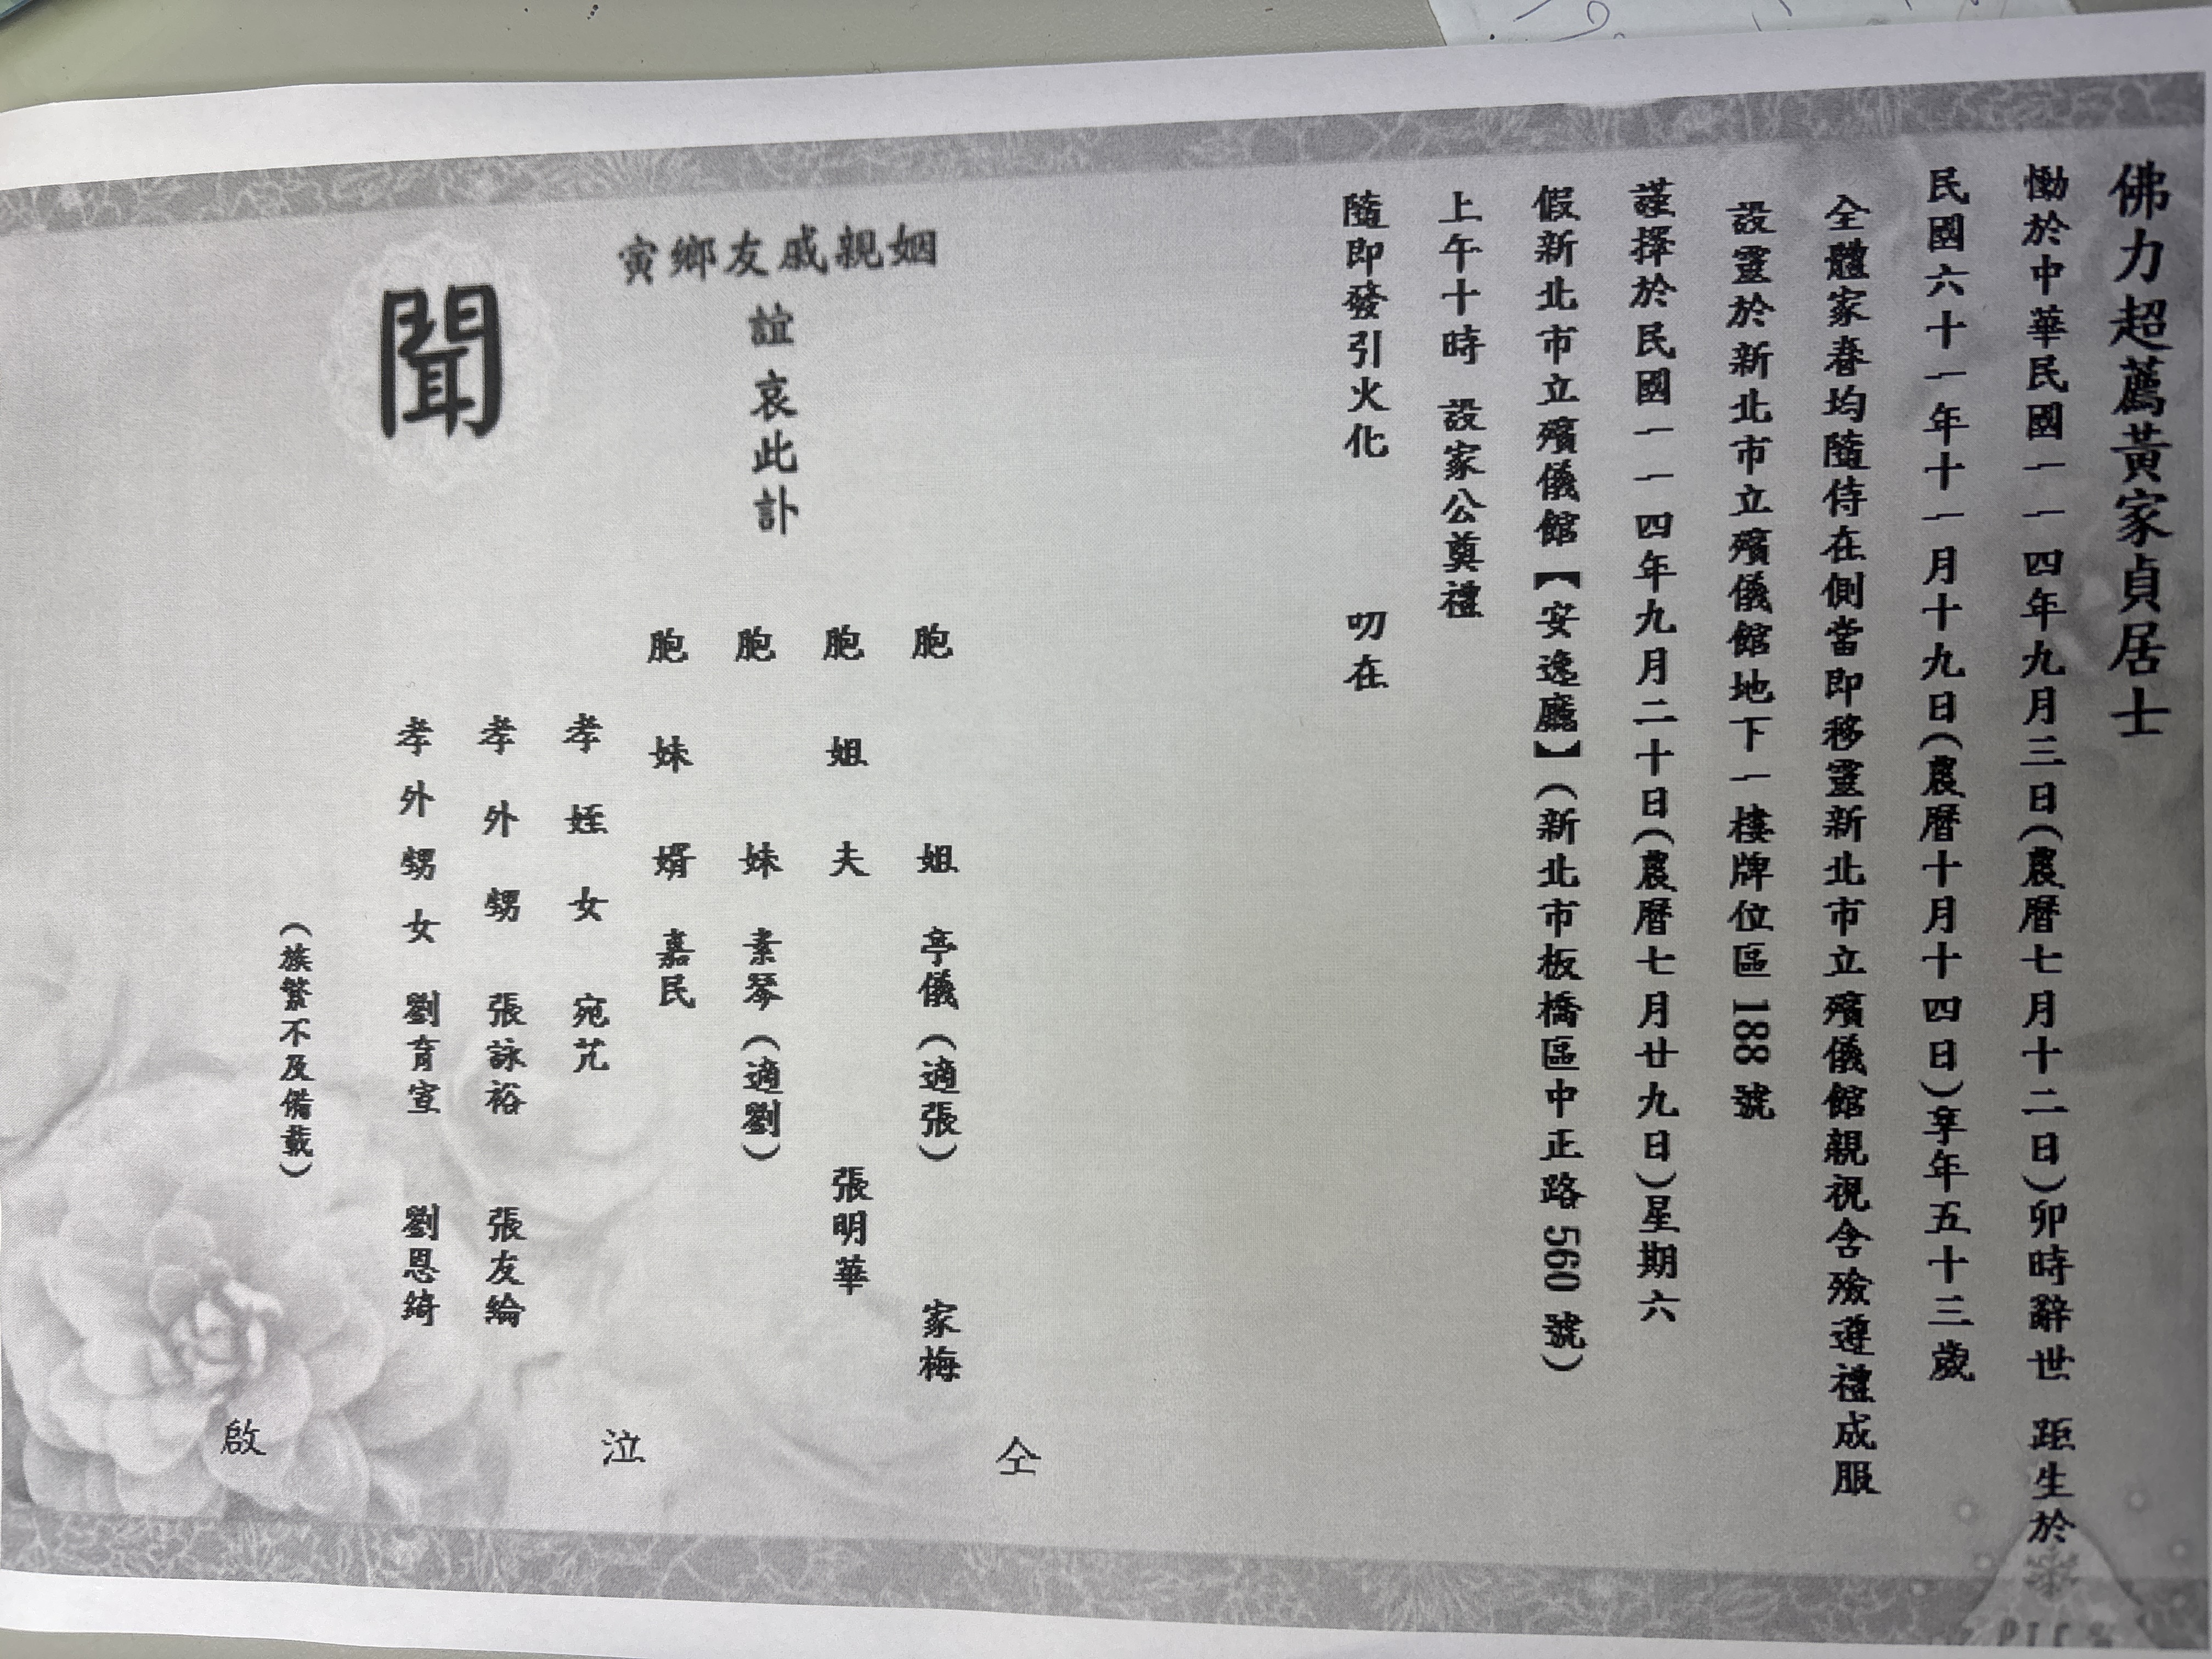 佛力超薦黃家貞居士
慟於中華民國一一四年九月三日(農曆七月十二日)卯時辭世 距生於
民國六十一年十一月十九日(農曆十月十四日)享年五十三歲
全體家眷均隨侍在側當即移靈新北市立殯儀館親視含殮遵禮成服
設靈於新北市立殯儀館地下一樓牌位區188號
謹擇於民國一一四年九月二十日(農曆七月廿九日)星期六
假新北市立殯儀館【安逸廳】(新北市板橋區中正路560號)
上午十時 設家公奠禮
隨即發引火化 叨在
姻親戚友鄉寅
誼哀此訃
聞
胞姐 亭儀(適張) 家梅
胞姐夫 張明華
胞妹 素琴(適劉)
胞妹婿 嘉民
孝姪女 宛芃
孝外甥 張詠裕 張友綸
孝外甥女 劉育宣 劉恩綺
(族繁不及備載)
仝 泣 啟